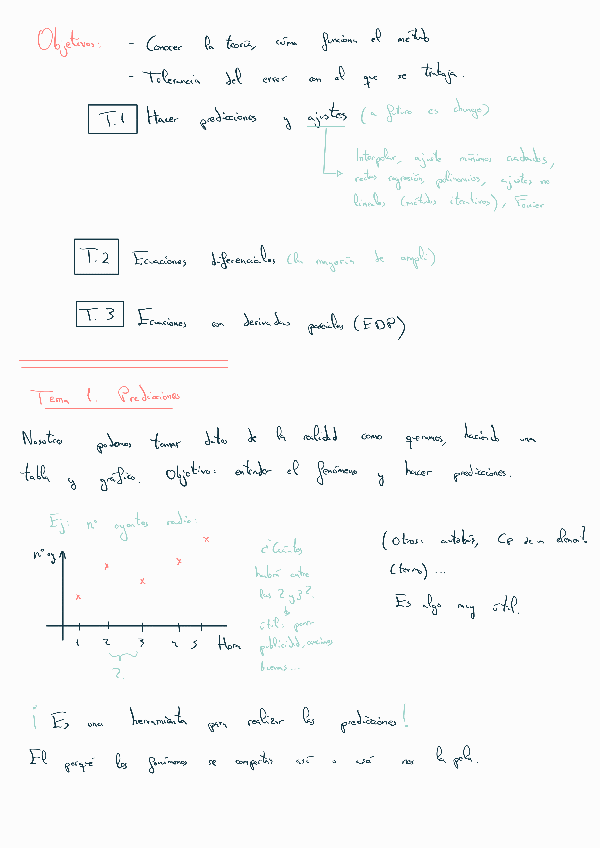 Objetivos: - Conocer la teoría, cómo funciona el método
- Tolerancia del error con el que se trabaja.
T.1 Hacer predicciones y ajustes (a futuro es chungo)
Interpolar, ajuste mínimos cuadrados,
rectas regresión, polinomios, ajustes no
lineales (métodos iterativos), Fourier
T.2 Ecuaciones diferenciales (la mayoría de ampli)
T.3 Ecuaciones con derivadas parciales (EDP)
Tema 1. Predicciones
Nosotros podemos tomar datos de la realidad como queramos, haciendo una
tabla y gráfica. Objetivo: entender el fenómeno y hacer predicciones.
Ej: nº oyentes radio:
nº oy
1 2 3 4 5 Hora
?
¿Cuántos
habrá entre
las 2 y 3?
útil: para
publicidad, canciones
buenas...
(Otros: autobús, CP de un
(termo) ...
Es algo muy útil.
¡Es una herramienta para realizar las predicciones!
El porqué los fenómenos se comportan así o asá nos la pela.